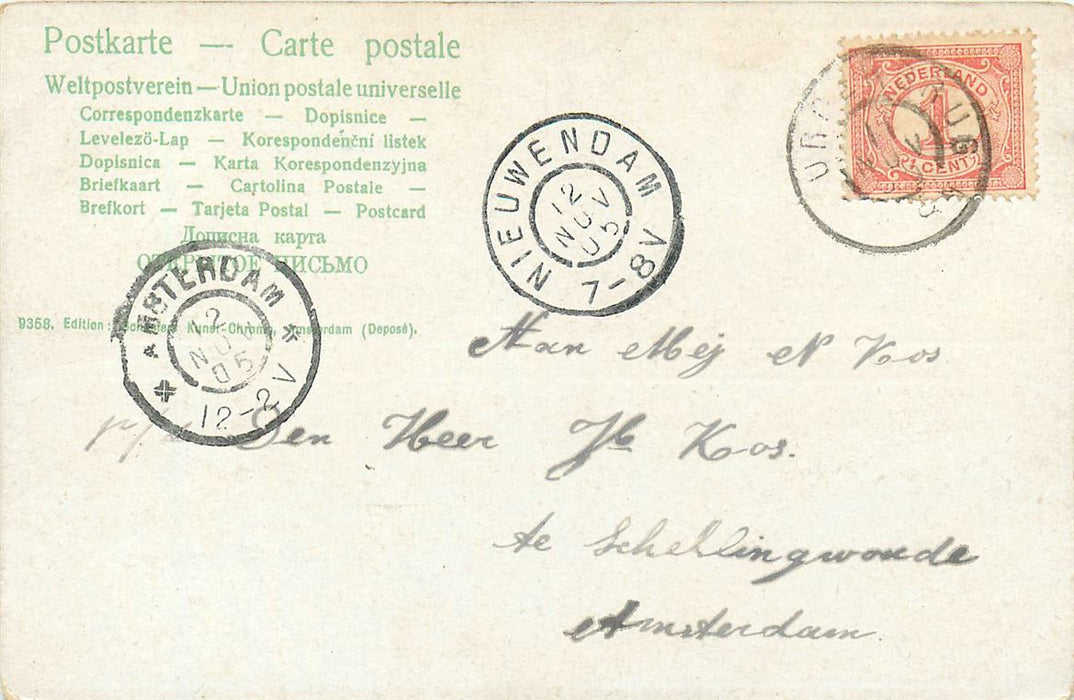 Postkarte — Carte postale
Weltpostverein — Union postale universelle
Correspondenzkarte — Dopisnice —
Levelező-Lap — Korespondenční listek
Dopisnica — Karta Korespondenzyjna
Briefkaart — Cartolina Postale —
Brefkort — Tarjeta Postal — Postcard
Дописна карта
ОТКРЫТОЕ ПИСЬМО
9358. Edition: Kunst-Chromo, Amsterdam (Deposé).
NEDERLAND
1
CENT
NIEUWENDAM
12
NOV
05
7-8V
AMSTERDAM
12
NOV
05
12-2V
Aan Mej N Kos
p/a Den Heer Jb Kos.
te Schellingwoude
Amsterdam.